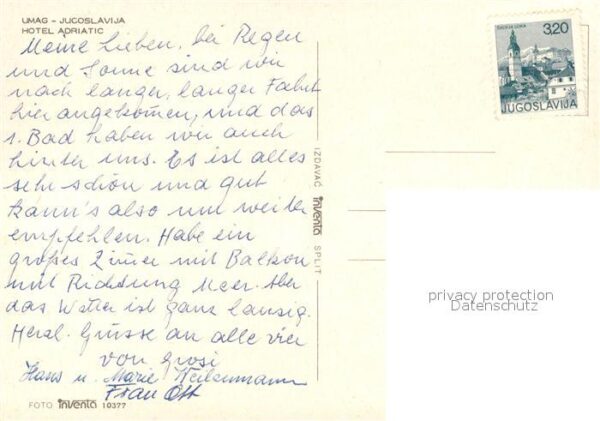 UMAG - JUGOSLAVIJA
HOTEL ADRIATIC
Meine Lieben, bei Regen
und Sonne sind wir
nach langer, langer Fahrt
hier angekommen, und das
1. Bad haben wir auch
hinter uns. Es ist alles
sehr schön und gut
kann's also nur weiter
empfehlen. Habe ein
großes Zimmer mit Balkon
mit Richtung Meer. Aber
das Wetter ist ganz lausig.
Herzl. Grüsse an alle vier
von Grosi
Hans u. Marie
Frau Ott
FOTO inventa 10377
IZDAVAČ inventa SPLIT
ŠKOFJA LOKA
3,20
JUGOSLAVIJA
privacy protection
Datenschutz